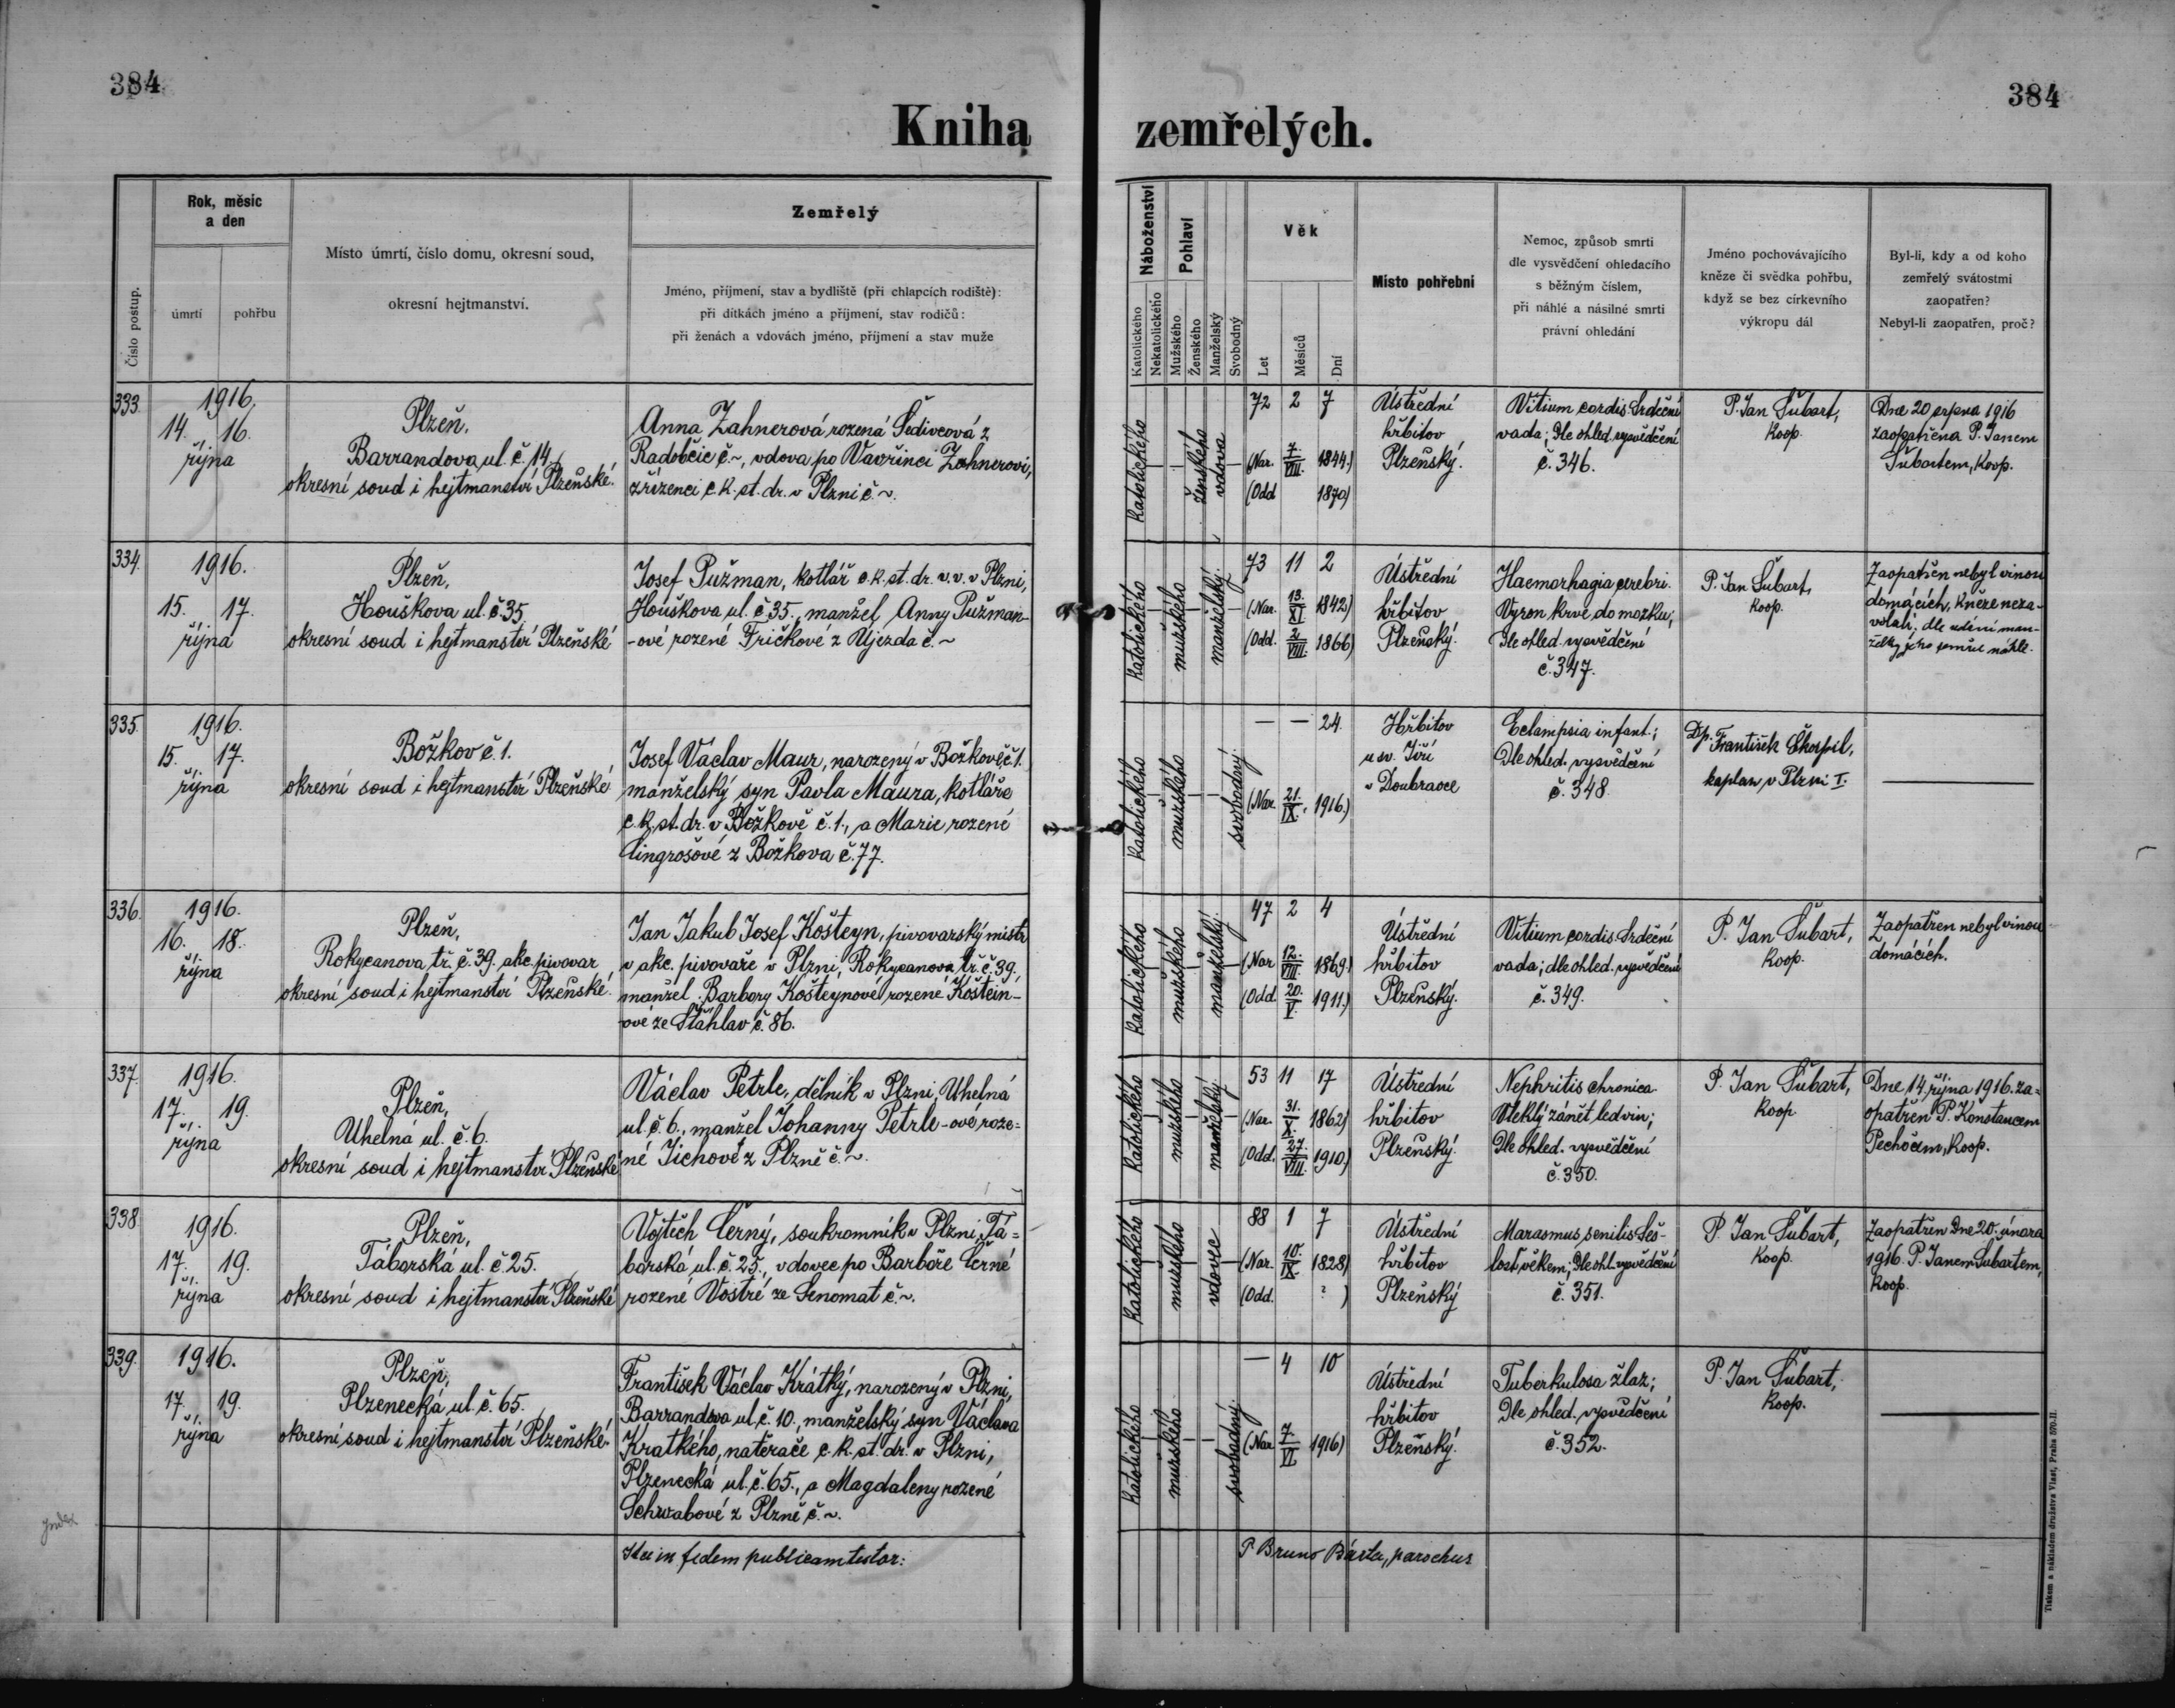 384
384
Kniha zemřelých.
Číslo postup.
Rok, měsíc
a den
úmrtí
pohřbu
Místo úmrtí, číslo domu, okresní soud,
okresní hejtmanství.
Zemřelý
Jméno, příjmení, stav a bydliště (při chlapcích rodiště):
při dítkách jméno a příjmení, stav rodičů:
při ženách a vdovách jméno, příjmení a stav muže
Náboženství
Katolického
Nekatolického
Pohlaví
Mužského
Ženského
Manželský
Svobodný
Věk
Let
Měsíců
Dní
Místo pohřební
Nemoc, způsob smrti
dle vysvědčení ohledacího
s běžným číslem,
při náhlé a násilné smrti
právní ohledání
Jméno pochovávajícího
kněze či svědka pohřbu,
když se bez církevního
výkropu dál
Byl-li, kdy a od koho
zemřelý svátostmi
zaopatřen?
Nebyl-li zaopatřen, proč?
333.
1916.
14. 16.
října
Plzeň,
Barrandova ul. č. 14,
okresní soud i hejtmanství Plzeňské.
Anna Zahnerová rozená Šedivcová z
Radobčic č. ~, vdova po Vavřinci Zahnerovi,
zřízenci c. k. st. dr. v Plzni č. ~.
katolického
ženského
vdova
72 2 7
(Nar. 7./VIII. 1844.)
(Odd 1870)
Ústřední
hřbitov
Plzeňský.
Vitium cordis. Srdeční
vada; Dle ohled. vysvědčení
č. 346.
P. Jan Šubart,
koop.
Dne 20 srpna 1916
zaopatřena P. Janem
Šubartem, koop.
334.
1916.
15. 17.
října
Plzeň,
Houškova ul. č. 35.
okresní soud i hejtmanství Plzeňské
Josef Pužman, kotlář c. k. st. dr. v. v. v Plzni,
Houškova ul. č. 35., manžel Anny Pužman-
-ové rozené Fričkové z Újezda č. ~
katolického
mužského
manželský.
73 11 2
(Nar. 13./XI. 1842)
(Odd. 2./VIII. 1866)
Ústřední
hřbitov
Plzeňský.
Haemorhagia cerebri.
Výron krve do mozku;
Dle ohled. vysvědčení
č. 347.
P. Jan Šubart,
koop.
Zaopatřen nebyl vinou
domácích, kněze neza-
volali; dle udání man-
želky jeho zemřel náhle.
335.
1916.
15. 17.
října
Božkov č. 1.
okresní soud i hejtmanství Plzeňské
Josef Václav Maur, narozený v Božkově č. 1.
manželský syn Pavla Maura, kotláře
c. k. st. dr. v Božkově č. 1., a Marie rozené
Cingrošové z Božkova č. 77.
katolického
mužského
svobodný.
— — 24.
(Nar. 21./IX. 1916.)
Hřbitov
u sv. Jiří
v Doubravce
Eclampsia infant.;
Dle ohled. vysvědčení
č. 348.
Dp. František Škospil,
kaplan v Plzni I.
336.
1916.
16. 18.
října
Plzeň,
Rokycanova tř. č. 39. akc. pivovar
okresní soud i hejtmanství Plzeňské.
Jan Jakub Josef Košteyn, pivovarský mistr
v akc. pivovaře v Plzni, Rokycanova tř. č. 39.,
manžel Barbory Košteynové rozené Koštein-
-ové ze Šťáhlav č. 86.
katolického
mužského
manželský.
47 2 4
(Nar. 12./VIII. 1869.)
(Odd. 20./V. 1911.)
Ústřední
hřbitov
Plzeňský.
Vitium cordis. Srdeční
vada; dle ohled. vysvědčení
č. 349.
P. Jan Šubart,
koop.
Zaopatřen nebyl vinou
domácích.
337.
1916.
17. 19.
října
Plzeň,
Uhelná ul. č. 6.
okresní soud i hejtmanství Plzeňské
Václav Petrle, dělník v Plzni, Uhelná
ul. č. 6., manžel Johanny Petrle-ové roze=
né Jichové z Plzně č. ~.
katolického
mužského
manželský.
53 11 17
(Nar. 31./X. 1862)
(Odd. 27./VIII. 1910)
Ústřední
hřbitov
Plzeňský.
Nephritis chronica.
Vleklý zánět ledvin;
Dle ohled. vysvědčení
č. 350.
P. Jan Šubart,
koop
Dne 14. října 1916. za=
opatřen P. Konstancem
Pechočem, koop.
338.
1916.
17. 19.
října
Plzeň,
Táborská ul. č. 25.
okresní soud i hejtmanství Plzeňské
Vojtěch Černý, soukromník v Plzni, Tá=
borská ul. č. 25., vdovec po Barboře Černé
rozené Vostré ze Senomat č. ~.
katolického
mužského
vdovec
88 1 7
(Nar. 10./IX. 1828)
(Odd. ? )
Ústřední
hřbitov
Plzeňský
Marasmus senilis. Seš-
lost věkem; Dle ohl. vysvědčení
č. 351.
P. Jan Šubart,
koop.
Zaopatřen Dne 20. února
1916. P. Janem Šubartem,
koop.
339.
1916.
17. 19.
října
Plzeň,
Plzenecká ul. č. 65.
okresní soud i hejtmanství Plzeňské.
František Václav Krátký, narozený v Plzni,
Barrandova ul. č. 10., manželský syn Václava
Kratkého, natěrače c. k. st. dr. v Plzni,
Plzenecká ul. č. 65., a Magdaleny rozené
Schwabové z Plzně č. ~.
katolického
mužského
svobodný
— 4 10
(Nar. 7./VI. 1916)
Ústřední
hřbitov
Plzeňský.
Tuberkulosa žlaz;
Dle ohled. vysvědčení
č. 352.
P. Jan Šubart,
koop.
Index
Ita in fidem publicam testor:
P Bruno Bárta, parochus
Tiskem a nákladem družstva Vlast, Praha 570-II.